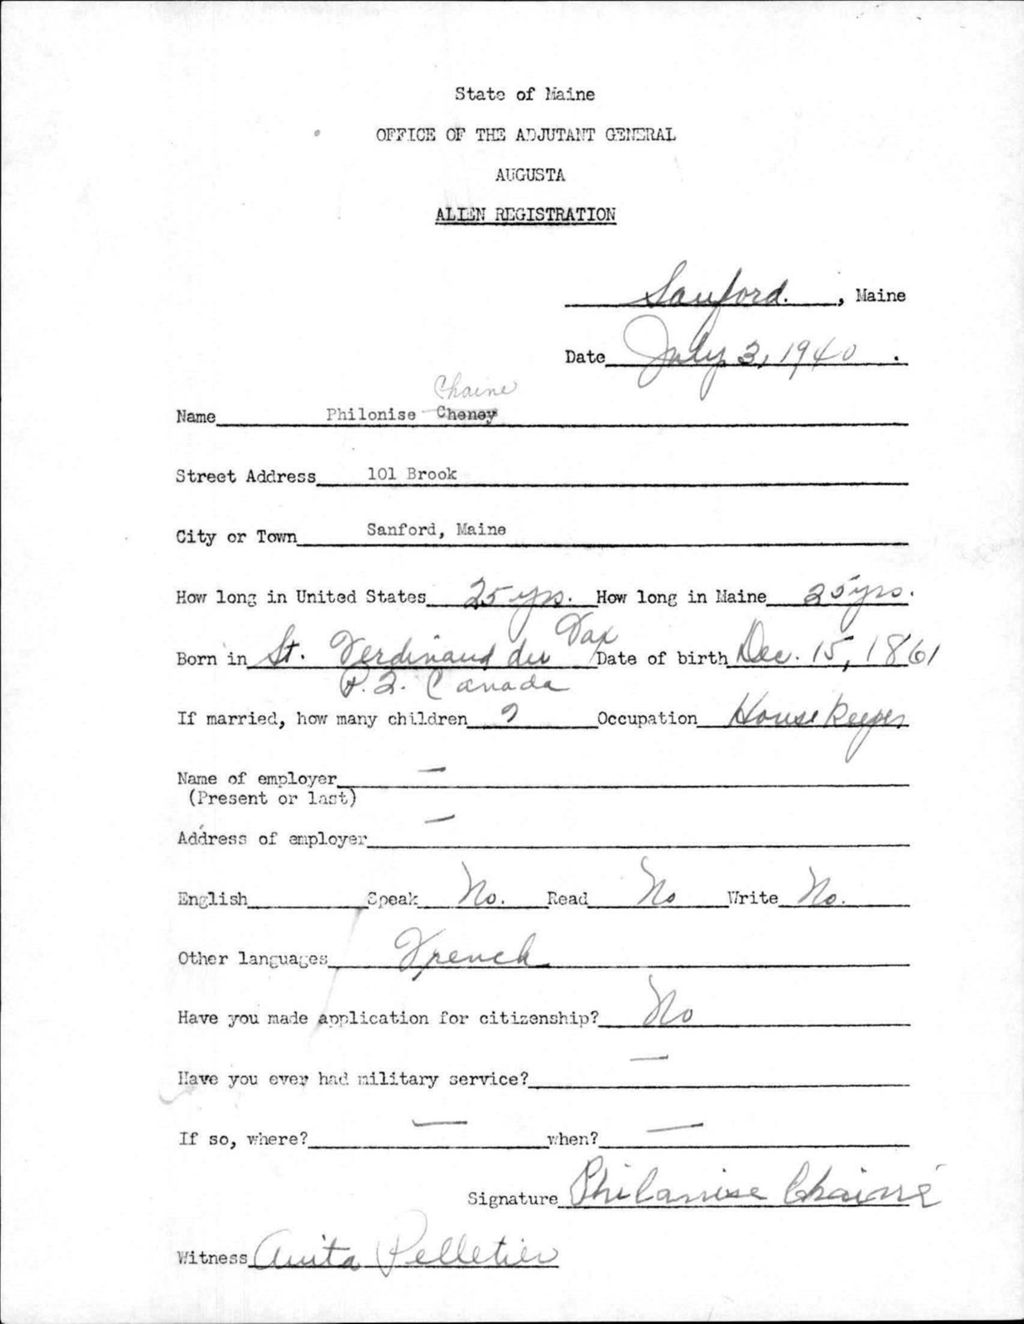 State of Maine
OFFICE OF THE ADJUTANT GENERAL
AUGUSTA
ALIEN REGISTRATION
Sanford. , Maine
Date July 3, 1940 .
Chaine
Name Philonise Cheney
Street Address 101 Brook
City or Town Sanford, Maine
How long in United States 25 yrs. How long in Maine 25 yrs.
Born in St. Ferdinand du Date of birth Dec. 15, 1861
P.Q. Canada
If married, how many children 9 Occupation Housekeeper
Name of employer —
(Present or last)
Address of employer —
English Speak No. Read No Write No.
Other languages French
Have you made application for citizenship? No
Have you ever had military service? —
If so, where? — when? —
Signature Philanise Chainé
Witness Anita Pelletier